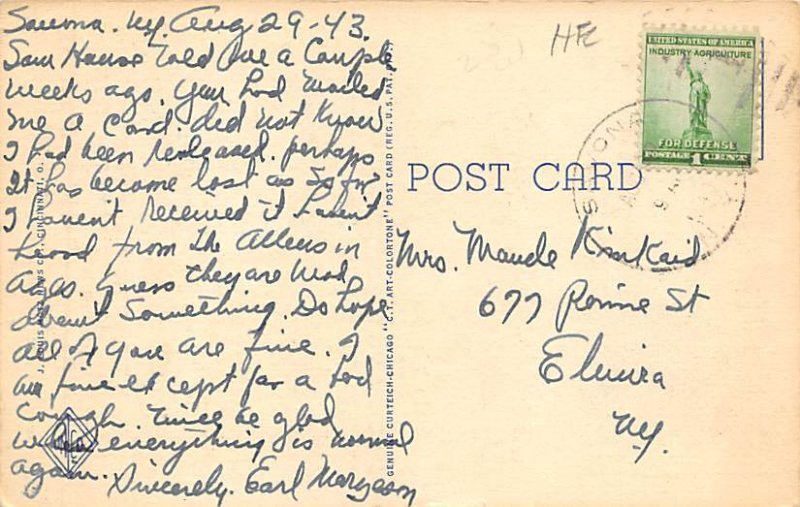 Savona. N.Y. Aug 29-43.
Sam House told me a Couple
weeks ago. you had mailed
me a Card. did not know
I had been released. perhaps
It has become lost as So far
I havent received it havent
heard from The Allens in
ages. Guess they are mad
about Something. Do hope
all of you are fine. I
am fine except for a bad
Cough. Twice be glad
when everything is normal
again.
Sincerely. Earl
HFE
UNITED STATES OF AMERICA
INDUSTRY AGRICULTURE
FOR DEFENSE
POSTAGE 1 CENT
POST CARD
Mrs. Maude Kinkaid
677 Rome St
Elmira
N.Y.
GENUINE CURTEICH-CHICAGO "C.T. ART-COLORTONE" POST CARD (REG. U.S. PAT. OFF.)
NEWS CO., CINCINNATI, O.